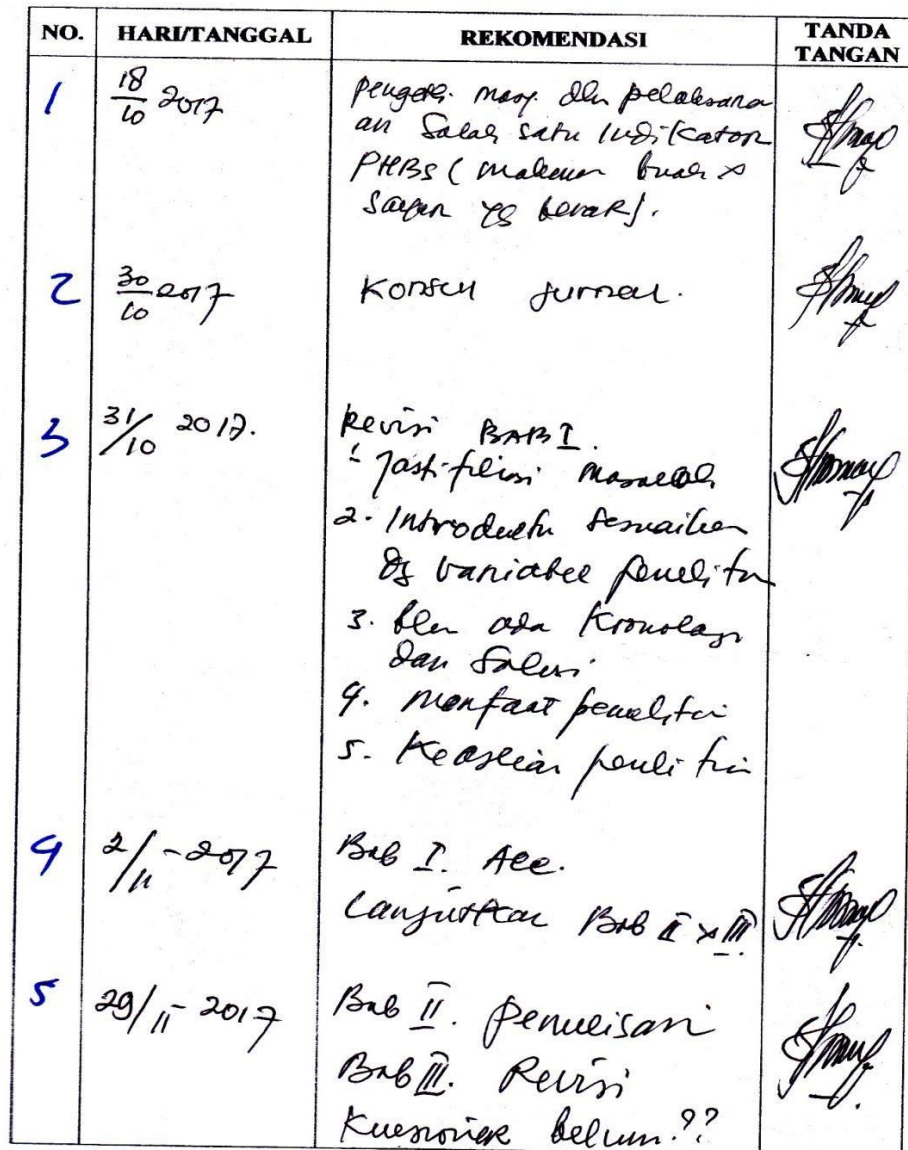 NO. HARI/TANGGAL REKOMENDASI TANDA TANGAN
1 18/10 2017 masy. dlm pelaksana
an salah satu indikator
PHBS (makan buah &
sayur yg benar).
2 30/10 2017 Konsul jurnal.
3 31/10 2017. Revisi BAB I.
1. Justifikasi masalah
2. Introduksi sesuaikan
dg variabel penelitin
3. blm ada Kronologi
dan Solusi
4. Manfaat penelitin
5. Keaslian penelitin
4 2/11-2017 Bab I. Acc.
Lanjutkan Bab II & III
5 29/11 2017 Bab II. Penulisan
Bab III. Revisi
Kuesioner belum??